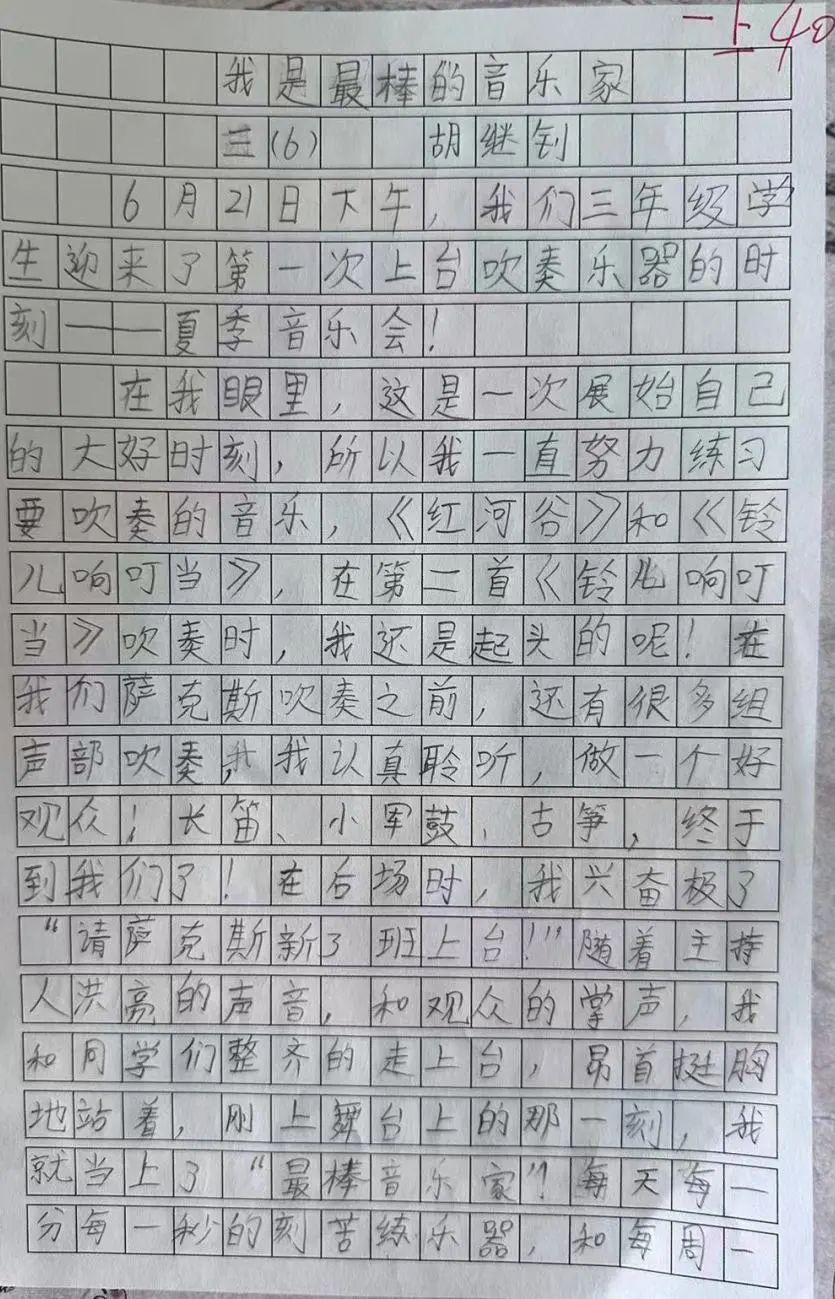 一上40
我是最棒的音乐家
三(6) 胡继钊
6月21日下午，我们三年级学
生迎来了第一次上台吹奏乐器的时
刻——夏季音乐会！
在我眼里，这是一次展始自己
的大好时刻，所以我一直努力练习
要吹奏的音乐，《红河谷》和《铃
儿响叮当》，在第二首《铃儿响叮
当》吹奏时，我还是起头的呢！在
我们萨克斯吹奏之前，还有很多组
声部吹奏，我认真聆听，做一个好
观众！长笛、小军鼓、古筝，终于
到我们了！在后场时，我兴奋极了
“请萨克斯新3班上台！”随着主持
人洪亮的声音，和观众的掌声，我
和同学们整齐的走上台，昂首挺胸
地站着，刚上舞台上的那一刻，我
就当上了“最棒音乐家”！每天每一
分每一秒的刻苦练乐器，和每周一